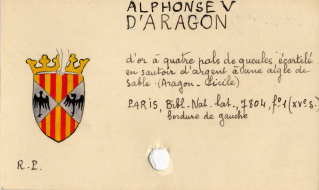 ALPHONSE V
D'ARAGON
d'or à quatre pals de gueules écartelé
en sautoir d'argent à une aigle de
sable (Aragon-Sicile)
PARIS, Bibl. Nat. lat., 7804, f° 1 (XVe s.)
bordure de gauche
R.P.